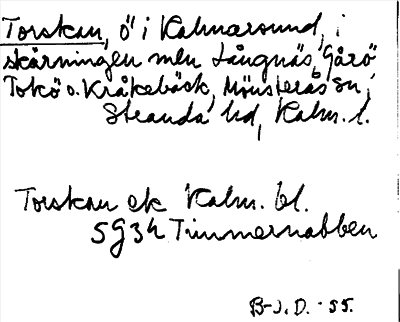 Torskan, ö i Kalmarsund, i
skärningen mln Långnäs, Gårö
Tokö o. Kråkebäck, Mönsterås sn,
Stranda hd, Kalm. l.
Torskan ek Kalm. bl.
5G3h Timmernabben
B-J. D. -55.